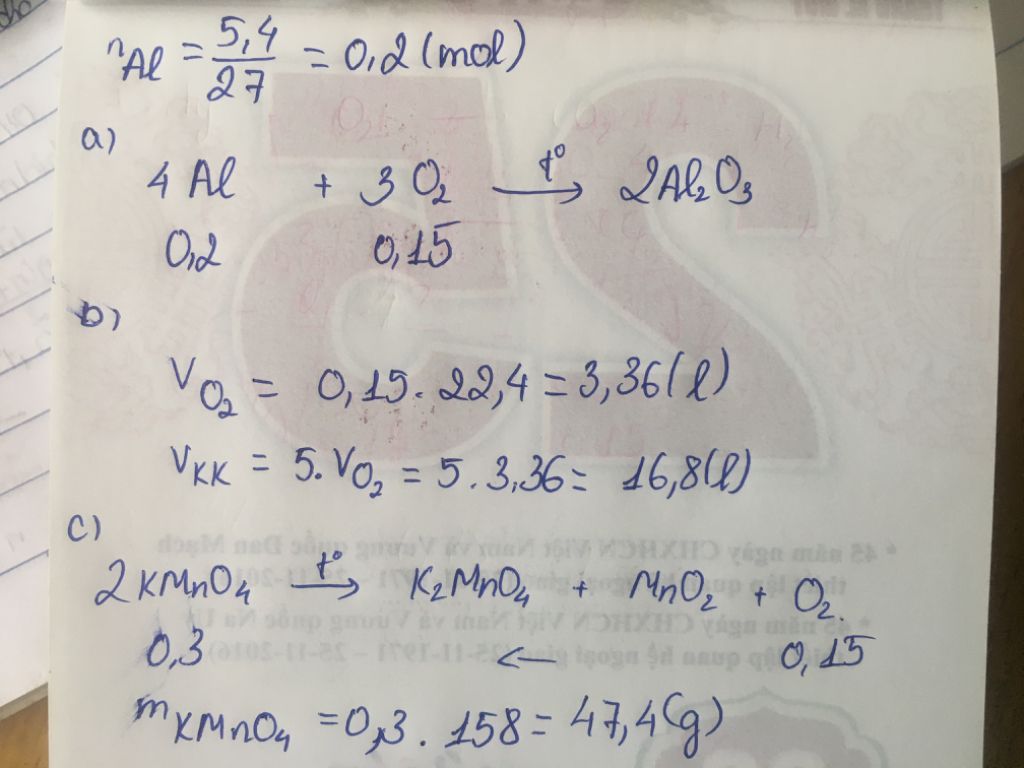 nAl = 5,4/27 = 0,2 (mol)
a)
4 Al + 3 O₂ →(t°) 2Al₂O₃
0,2 0,15
b)
V O₂ = 0,15. 22,4 = 3,36(l)
VKK = 5. VO₂ = 5 . 3,36 = 16,8(l)
c)
2 KMnO₄ →(t°) K₂MnO₄ + MnO₂ + O₂
0,3 ← 0,15
mKMnO₄ = 0,3 . 158 = 47,4(g)
25
* 45 năm ngày CHXHCN Việt Nam và Vương quốc Đan Mạch
thiết lập quan hệ ngoại giao (25-11-1971 – 25-11-2016)
* 45 năm ngày CHXHCN Việt Nam và Vương quốc Na Uy
thiết lập quan hệ ngoại giao (25-11-1971 – 25-11-2016)